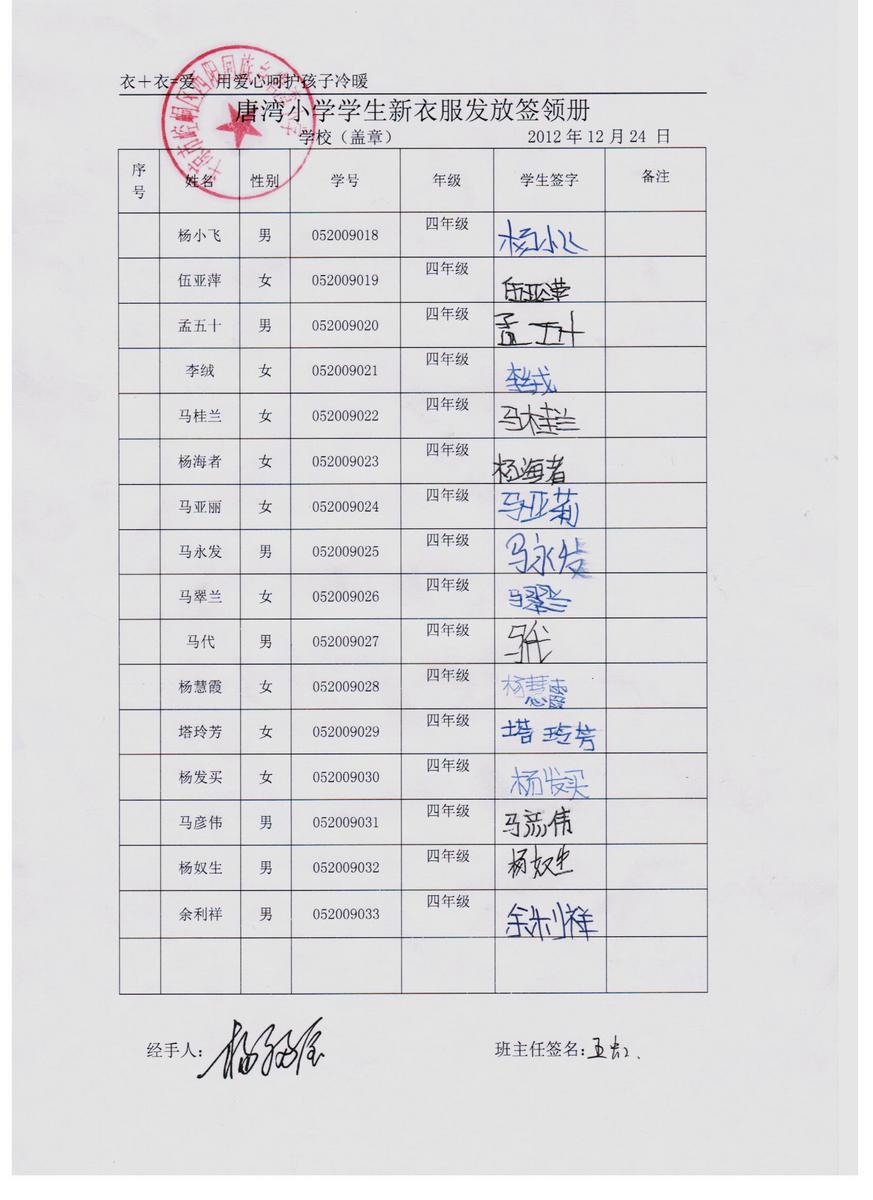 衣+衣=爱 用爱心呵护孩子冷暖
唐湾小学学生新衣服发放签领册
学校（盖章） 2012年12月24日
序号 姓名 性别 学号 年级 学生签字 备注
杨小飞 男 052009018 四年级 杨小飞
伍亚萍 女 052009019 四年级 伍亚萍
孟五十 男 052009020 四年级 孟五十
李绒 女 052009021 四年级 李绒
马桂兰 女 052009022 四年级 马桂兰
杨海者 女 052009023 四年级 杨海者
马亚丽 女 052009024 四年级 马亚莉
马永发 男 052009025 四年级 马永发
马翠兰 女 052009026 四年级 马翠兰
马代 男 052009027 四年级 马代
杨慧霞 女 052009028 四年级 杨慧霞
塔玲芳 女 052009029 四年级 塔玲芳
杨发买 女 052009030 四年级 杨发买
马彦伟 男 052009031 四年级 马彦伟
杨奴生 男 052009032 四年级 杨奴生
余利祥 男 052009033 四年级 余利祥
经手人： 班主任签名：